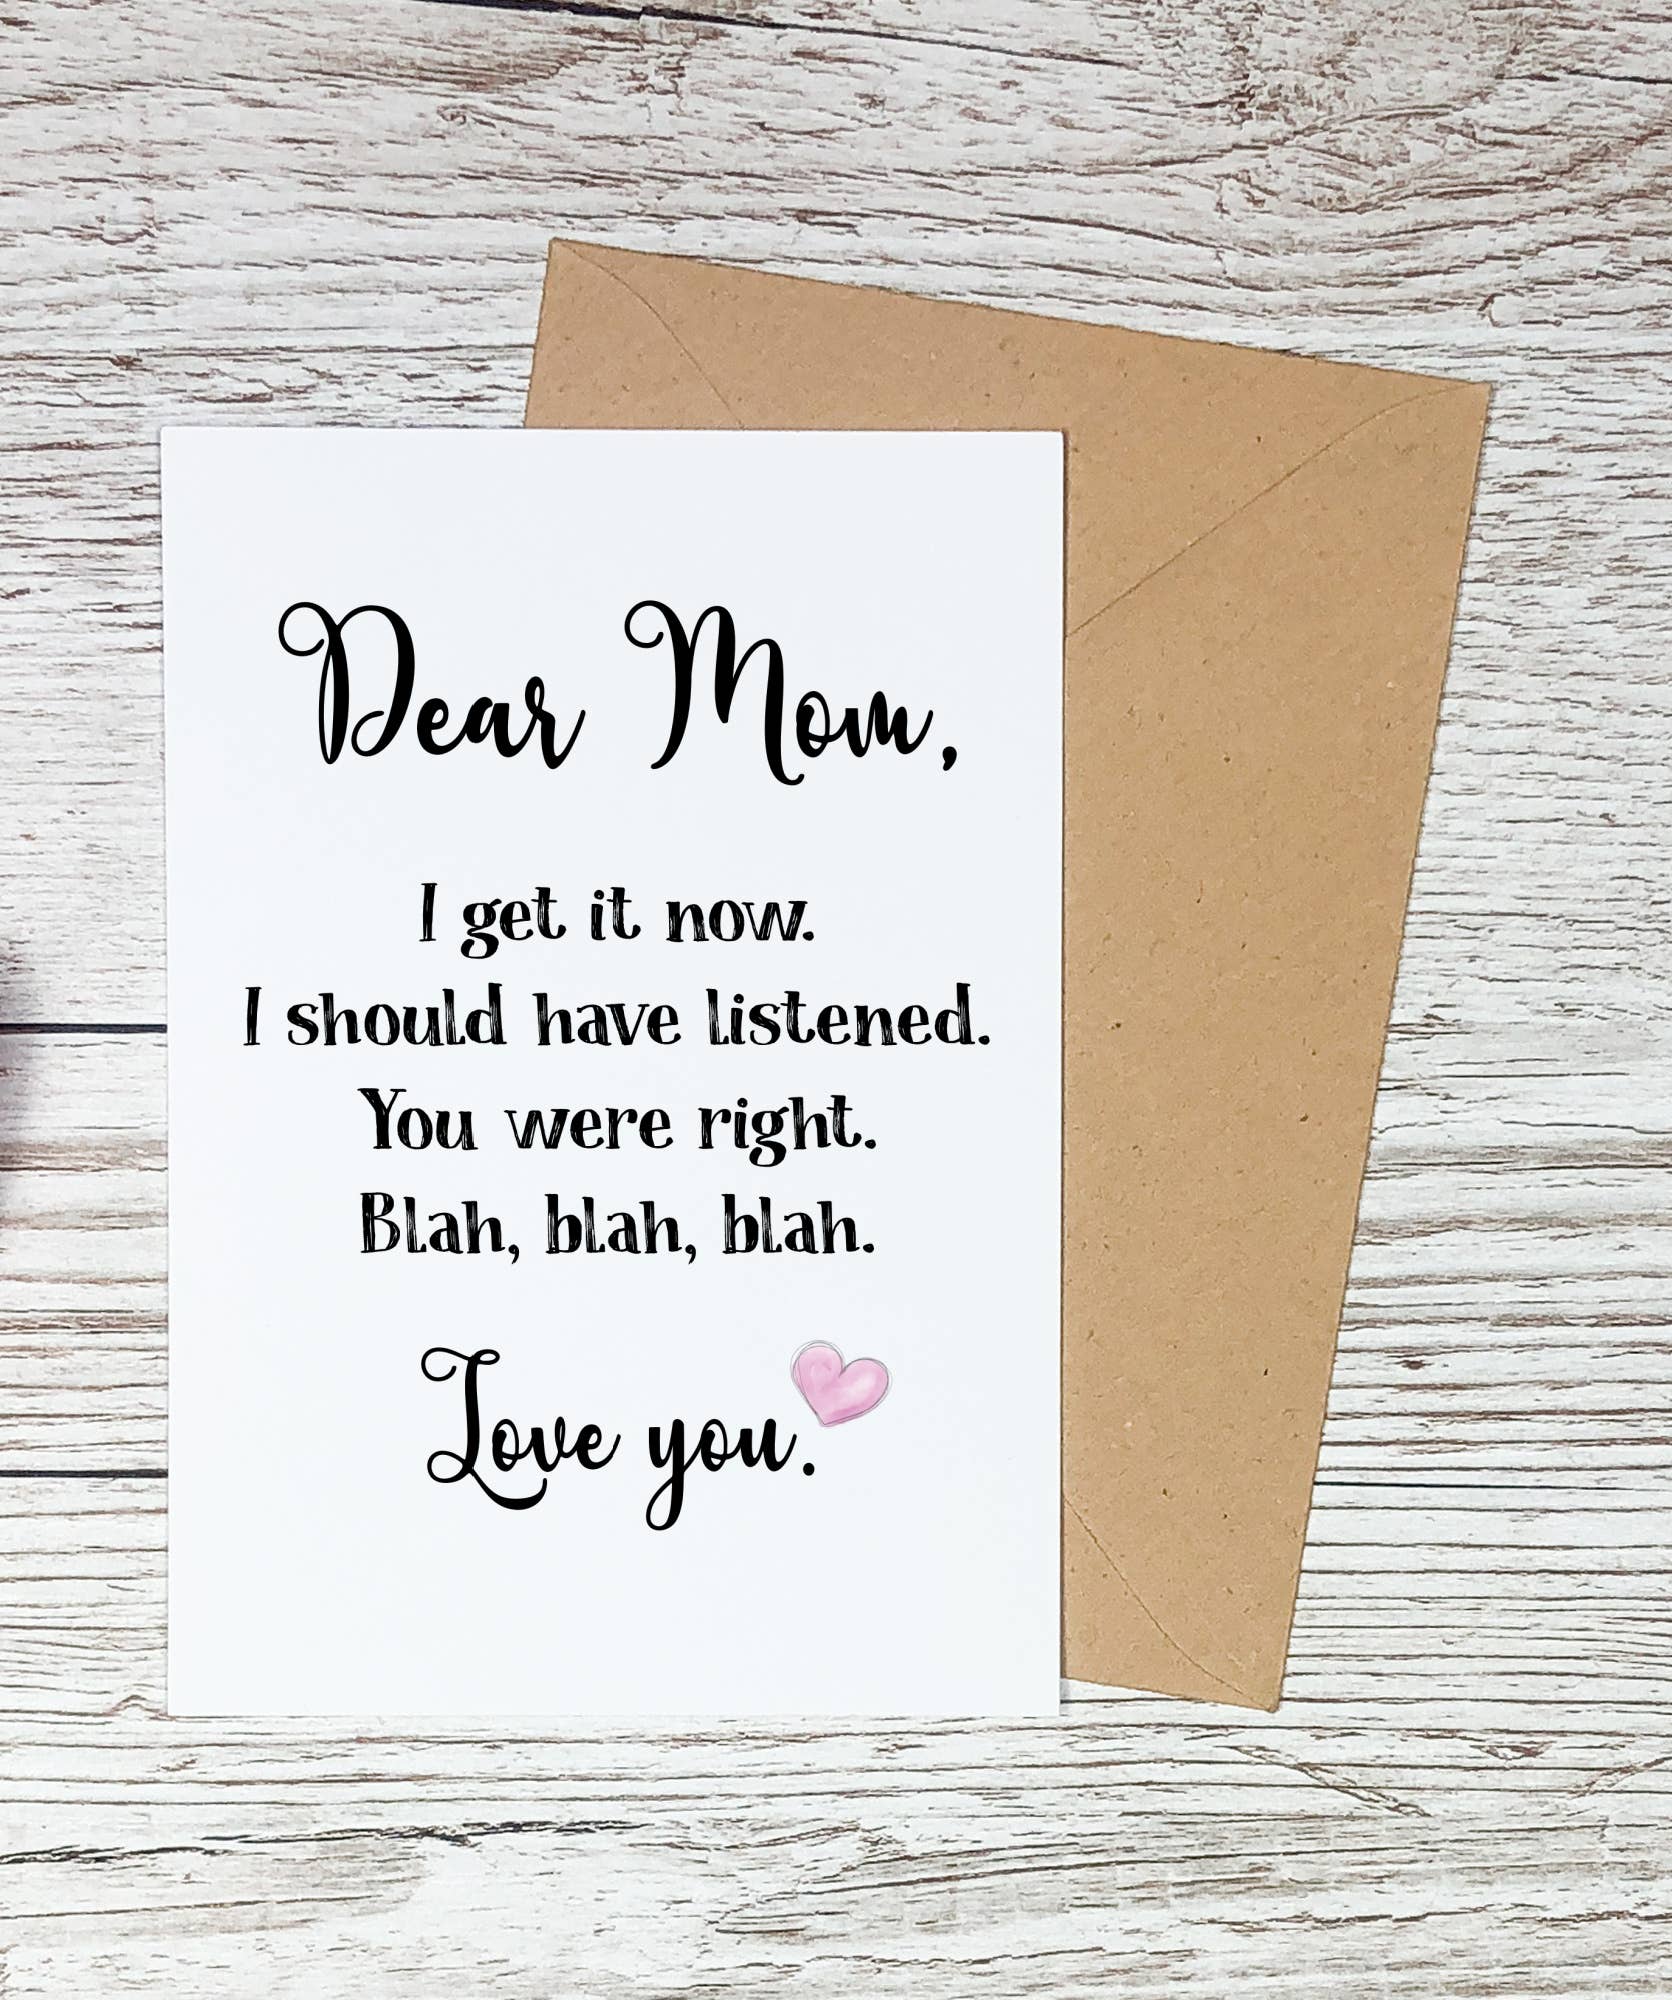 Dear Mom,
I get it now.
I should have listened.
You were right.
Blah, blah, blah.
Love you.